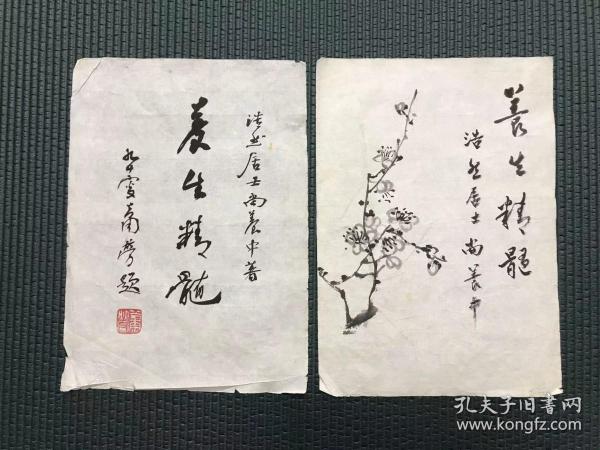 浩然居士尚养中著
养生精髓
养生精髓
浩然居士尚养中
孔夫子旧书网
www.kongfz.com